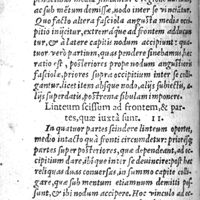 ac sub mento demisse, nodo inter se vinciatur.
Quo facto altera fasciola angusta medio occi-
pitio injicitur, extremaque ad frontem adducun-
tur, & à latere capitis nodum accipiunt: quod
vero superest partium, quas pendere sinebamus, hac
ratio est, posteriores prope nodum angustioris
fasciolæ, priores supra occipitium inter se colli-
gantur. licet item absque nodo, aliis subiectis, a-
liis superdatis, postrema fibulam imponere.
Linteum scissum ad frontem, & par-
tes, quæ iuxtà sunt. 11.
In quatuor partes scindere linteum oportet,
medio intacto quà fronti circumdetur: priorésque
partes super posteriores, quæ dependeant, ad oc-
cipitium dare, ibi que inter se devincire: post hec
reliquas duas conversas, in summo capite colli-
gare, quas sub mentum etiamnum demitti pos-
sunt, & ibi nodum accipere. Hoc vinculo ad-